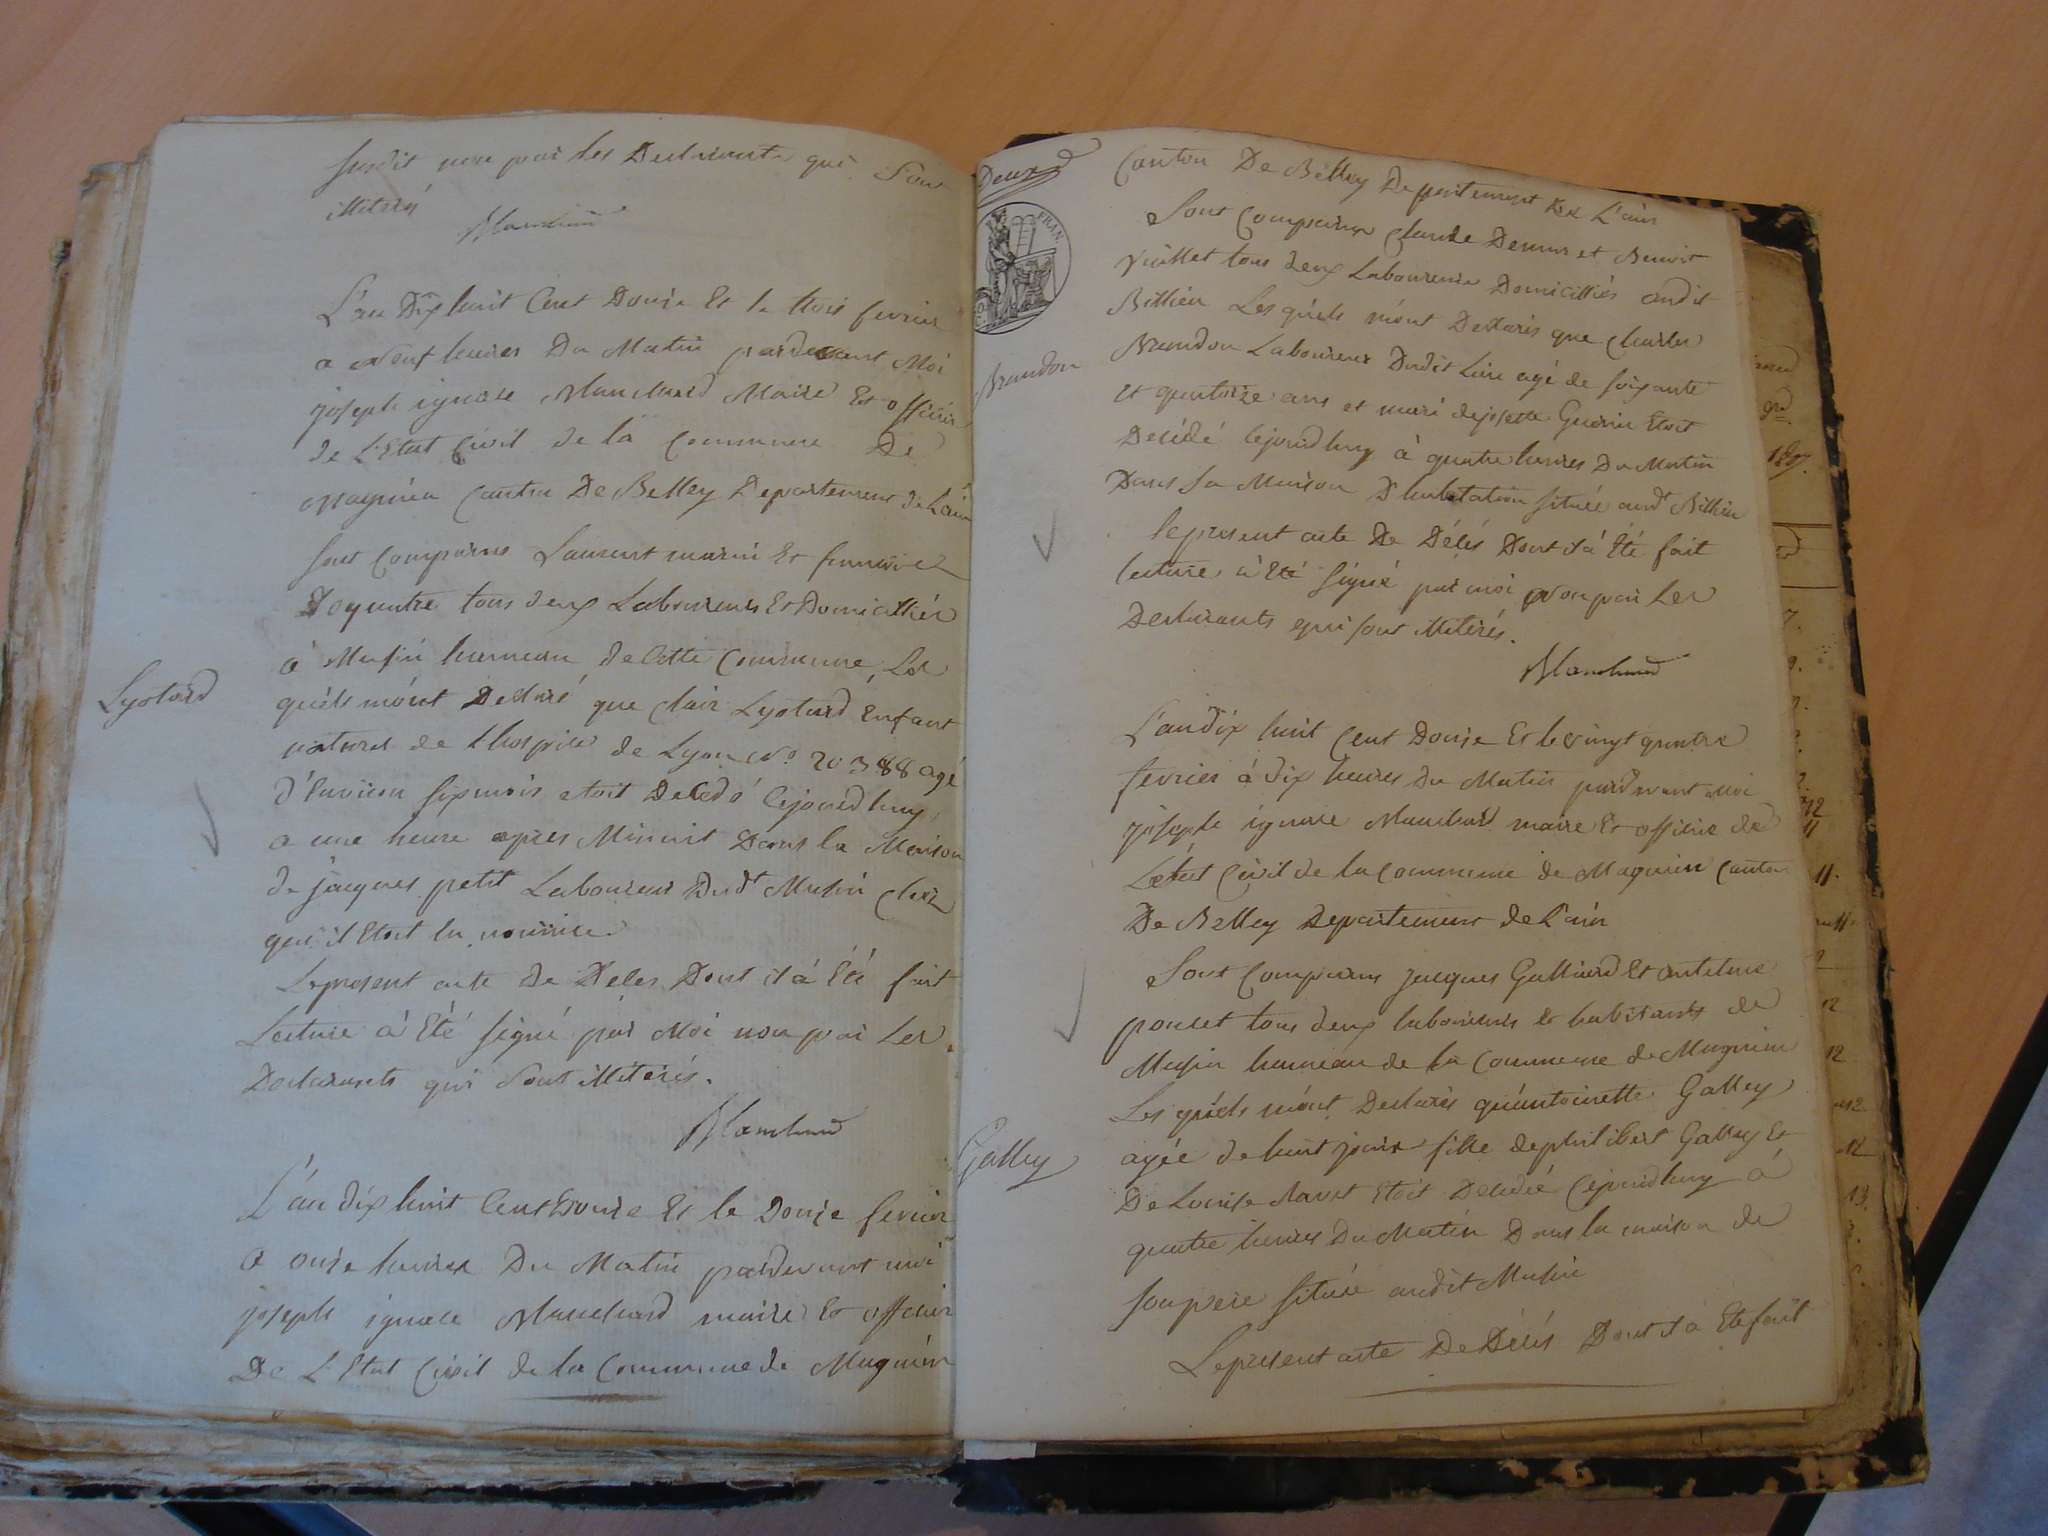 susdit non par les Declarants qui Sont
illiterés
Blanchard
L'an Dix huit Cent Douze Et le trois fevrier
a Neuf heures Du Matin pardevant Moi
joseph ignace Blanchard Maire Et officier
de L'Etat Civil de la Commune De
Magnieu Canton De Belley Departement de L'ain
Sont Comparus Laurent marin Et
tous deux Laboureurs Et Domicilliés
à Musin hameau de Cette Commune, Les
Lyotard
quéls m'ont Declaré que Clair Lyotard Enfant
naturel de L'hospice de Lyon No. 20388 agé
d'Environ six mois etoit Décédé Cejourdhuy,
a une heure apres Minuit Dans la Maison
de jacques petit Laboureur Dudt Musin Chez
qui il Etoit En nourrice
Le present acte de Déces Dont il à Eté fait
Lecture à Eté signé par Moi non par Les
Declarants qui Sont illiterés.
Blanchard
L'an dix huit Cent Douze Et le Douze fevrier
à onze heures Du Matin pardevant moi
joseph ignace Blanchard maire Et officier
De L'Etat Civil de la Commune de Magnieu
Deux
FRAN.
Canton De Belley Departement De L'ain
Sont Comparus Claude Demur et Benoit
Vuillet tous deux Laboureurs Domicilliés audit
Billieu Les quéls m'ont Declarés que Charles
Brandon
Brandon Laboureur Dudit Lieu agé de soixante
Et quatorze ans et mari de josette Guerin Etoit
Décédé Cejourdhuy à quatre heures Du Matin
Dans Sa Maison D'habitation située audt Billieu
le present acte De Décés Dont il à Eté fait
lecture à Eté signé par moi Non par Les
Declarants qui sont illiterés.
Blanchard
L'an dix huit Cent Douze Et le vingt quatre
fevrier à dix heures du Matin pardevant moi
joseph ignace Blanchard maire Et officier de
L'etat Civil de la Commune de Magnieu Canton
De Belley Departement de L'ain
Sont Comparus jacques Galliard Et antelme
poncet tous deux laboureurs Et habitants de
Musin hameau de la Commune de Magnieu
Les quéls m'ont Declarés qu'antoinette Galley
Galley
agée de huit jours fille de philibert Galley Et
De Louise Etoit Décédée Cejourdhuy à
quatre heures Du Matin Dans la maison de
son pere située audit Musin
Le present acte De Décés Dont il à Eté fait